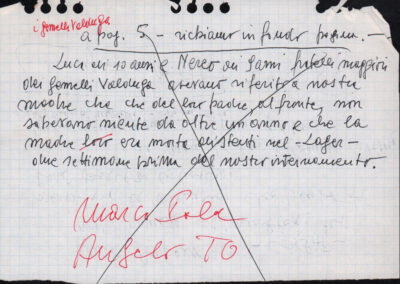 i gemelli Valduga
a pag. 5 - richiamo in fondo pagina. -
Luca di 10 anni e Nereo di 9 anni fratelli maggiori
dei gemelli Valduga avevano riferito a nostra
madre che che del loro padre, al fronte, non
sapevano niente da oltre un anno e che la
madre loro era morta di stenti nel - Lager -
due settimane prima del nostro internamento.
Marco
Angelo TO